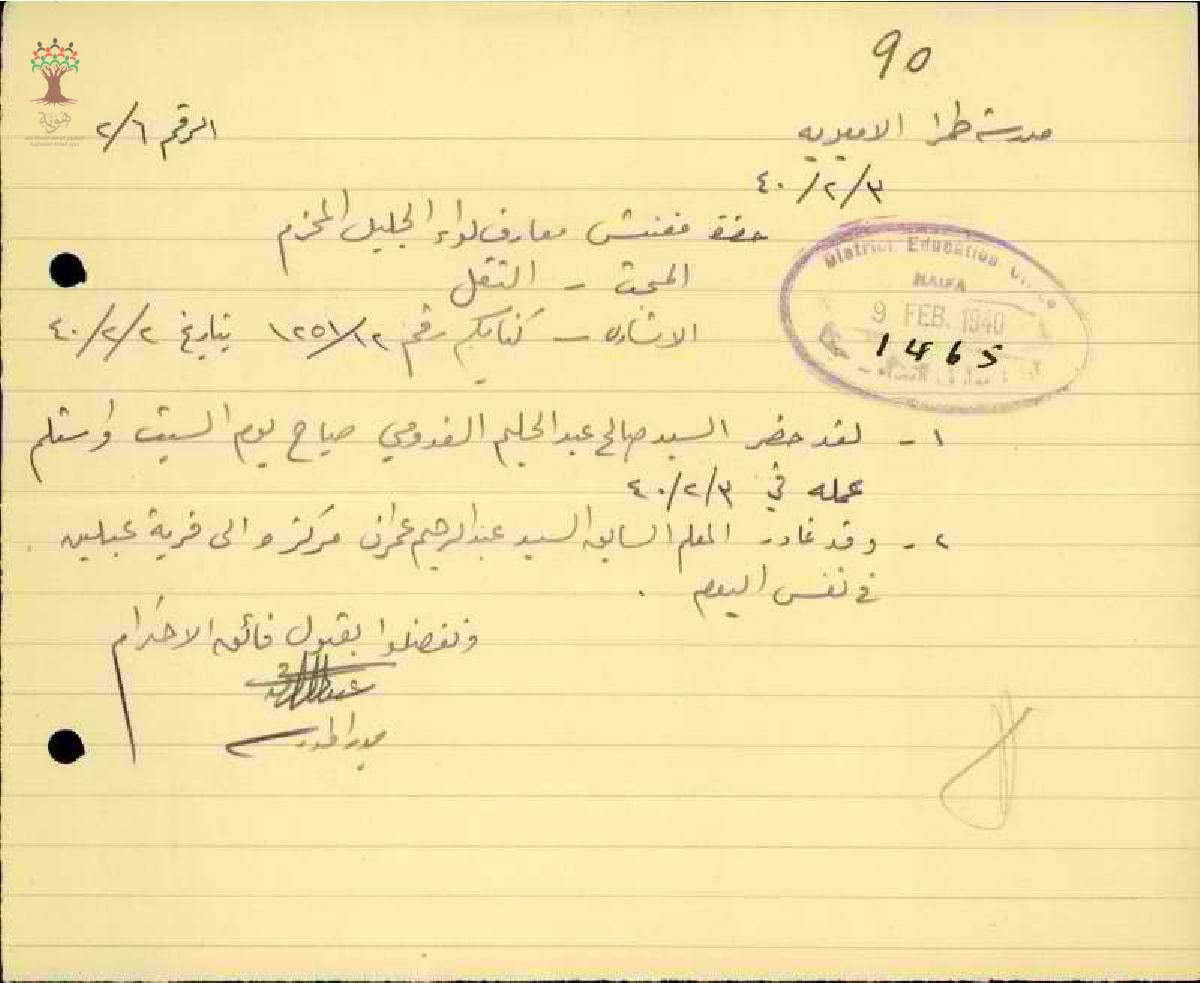 90
هوية
مدرسة طمرا الاميرية
الرقم ٢/٦
٤٠/٢/٣
حضرة مفتش معارف لواء الجليل المحترم
المبحث - التنقل
الاشاره - كتابكم رقم ١٢٥١/١٢ بتاريخ ٤٠/٢/٢
District Education Office
HAIFA
9 FEB. 1940
1465
١- لقد حضر السيد صالح عبد الحليم القدومي صباح يوم السبت واستلم
عمله في ٤٠/٢/٣
٢- وقد غادر المعلم السابق السيد عبد الرحيم عمران مركزه الى قرية عبلين
في نفس اليوم .
وتفضلوا بقبول فائق الاحترام
مدير المدرسة